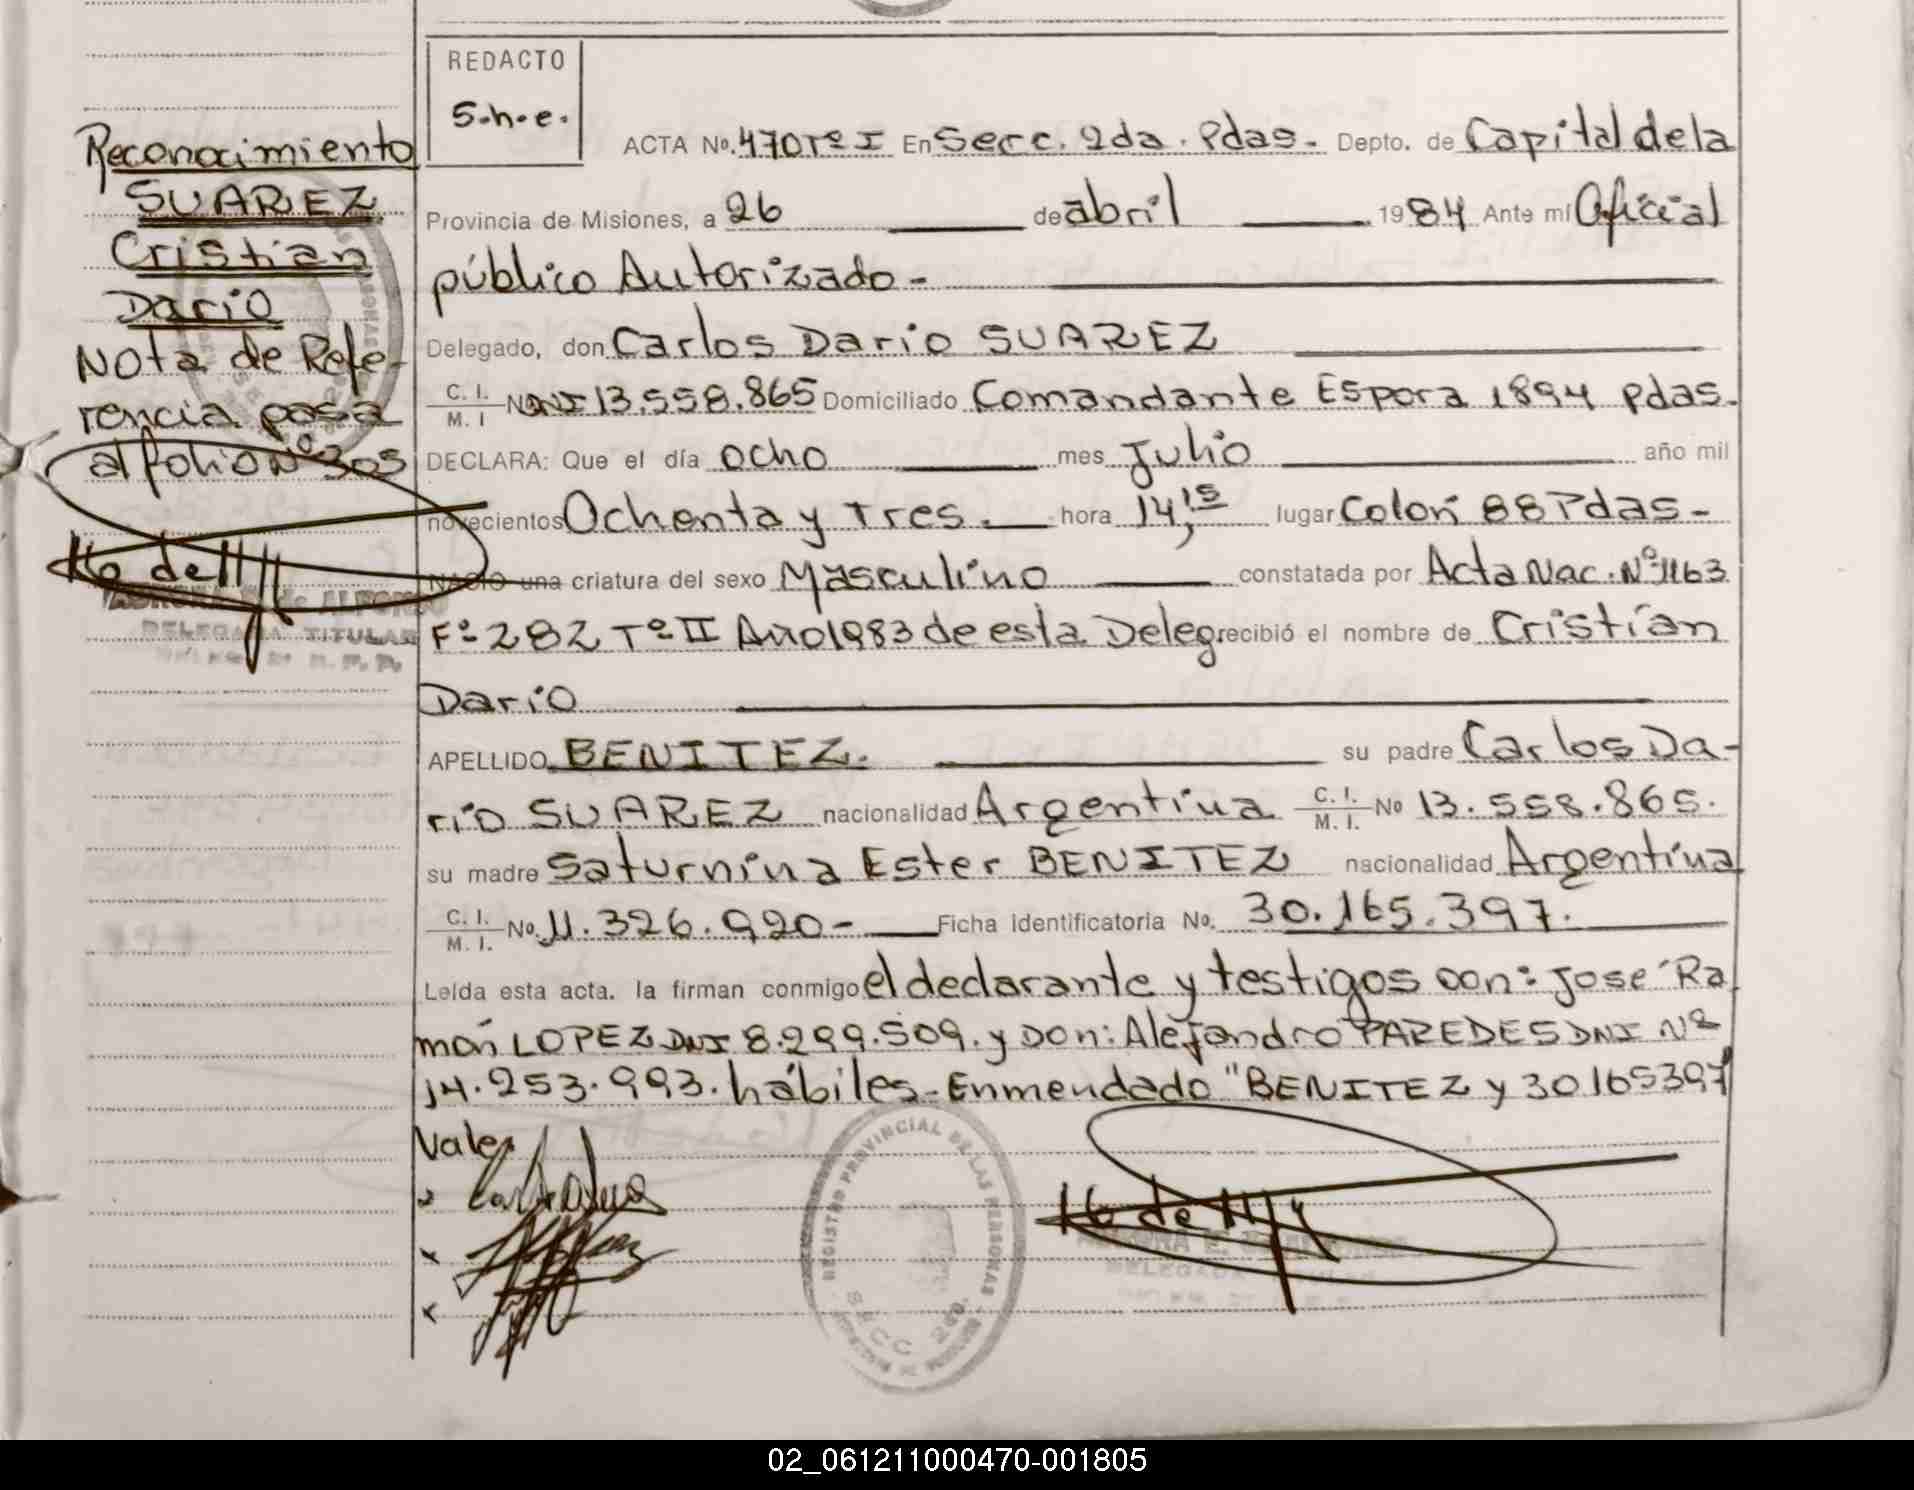 REDACTO
S.h.e.
Reconocimiento
SUAREZ
Cristian
Dario
Nota de Refe-
rencia pasa
al folio Nº 305
DELEGADA TITULAR
ACTA No. 470 Tº I En Secc. 2da. Pdas. Depto. de Capital de la
Provincia de Misiones, a 26 de abril 1984 Ante mí Oficial
público Autorizado -
Delegado, don Carlos Dario SUAREZ
C. I. / M. I No DNI 13.558.865 Domiciliado Comandante Espora 1894 Pdas.
DECLARA: Que el día ocho mes Julio año mil
novecientos Ochenta y Tres. hora 14,15 lugar Colón 88 Pdas-
NACIO una criatura del sexo Masculino constatada por Acta Nac. Nº 1163
Fº 282 Tº II Año 1983 de esta Deleg recibió el nombre de Cristian
Darío
APELLIDO BENITEZ. su padre Carlos Da-
río SUAREZ nacionalidad Argentina C. I. / M. I. No 13.558.865.
su madre Saturnina Ester BENITEZ nacionalidad Argentina
C. I. / M. I. No. 11.326.920- Ficha identificatoria No. 30.165.397.
Leída esta acta. la firman conmigo el declarante y testigos Don: José Ra
món LOPEZ DNI 8.299.509. y Don: Alejandro PAREDES DNI Nº
14.253.993. hábiles- Enmendado "BENITEZ y 30165397
Vale.
REGISTRO PROVINCIAL DE LAS PERSONAS
SECC 2da.
02_061211000470-001805